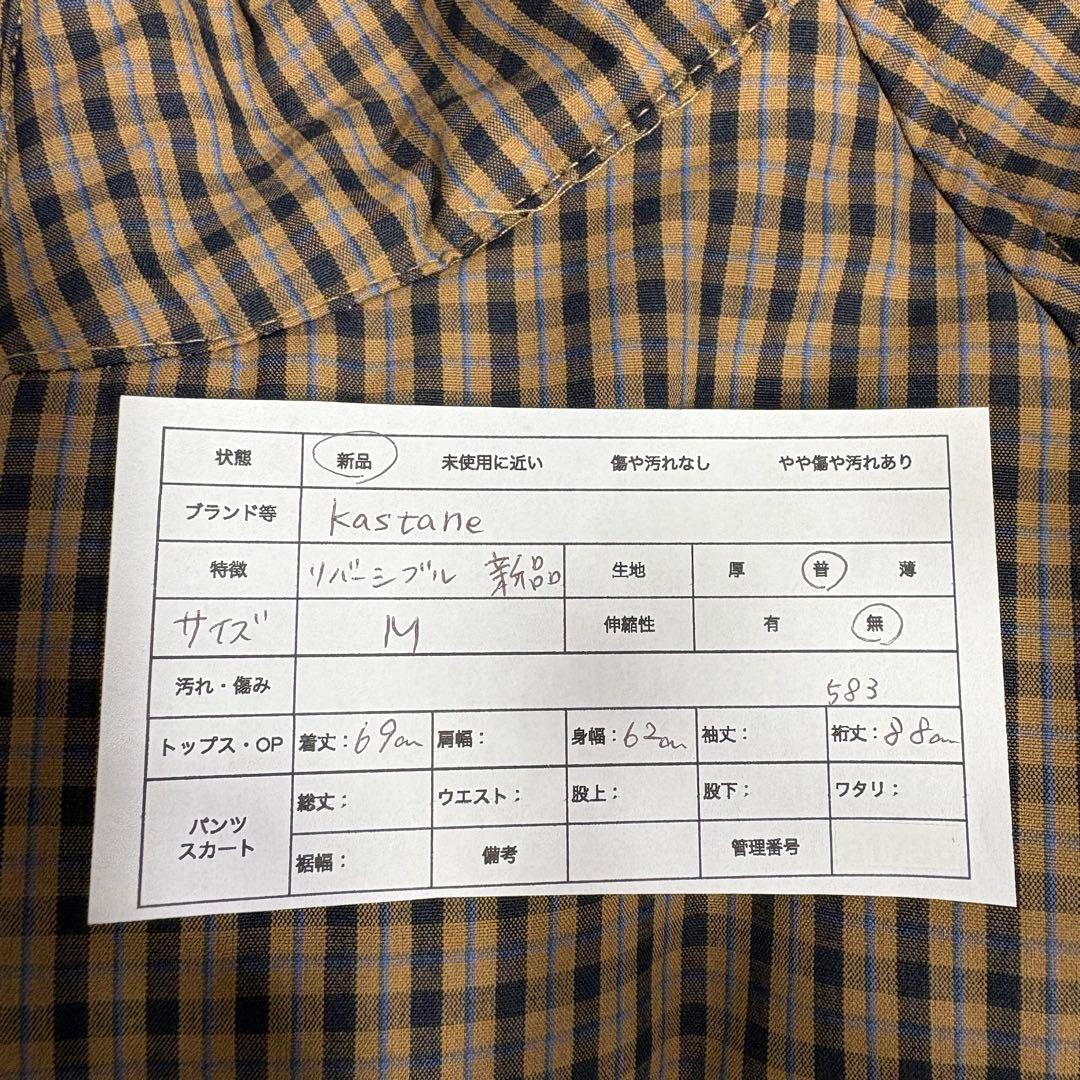 状態 新品 未使用に近い 傷や汚れなし やや傷や汚れあり
ブランド等 kastane
特徴 リバーシブル 新品 生地 厚 普 薄
サイズ M 伸縮性 有 無
汚れ・傷み 583
トップス・OP 着丈:69cm 肩幅: 身幅:62cm 袖丈: 裄丈:88cm
パンツ スカート 総丈; ウエスト; 股上; 股下; ワタリ;
裾幅: 備考 管理番号